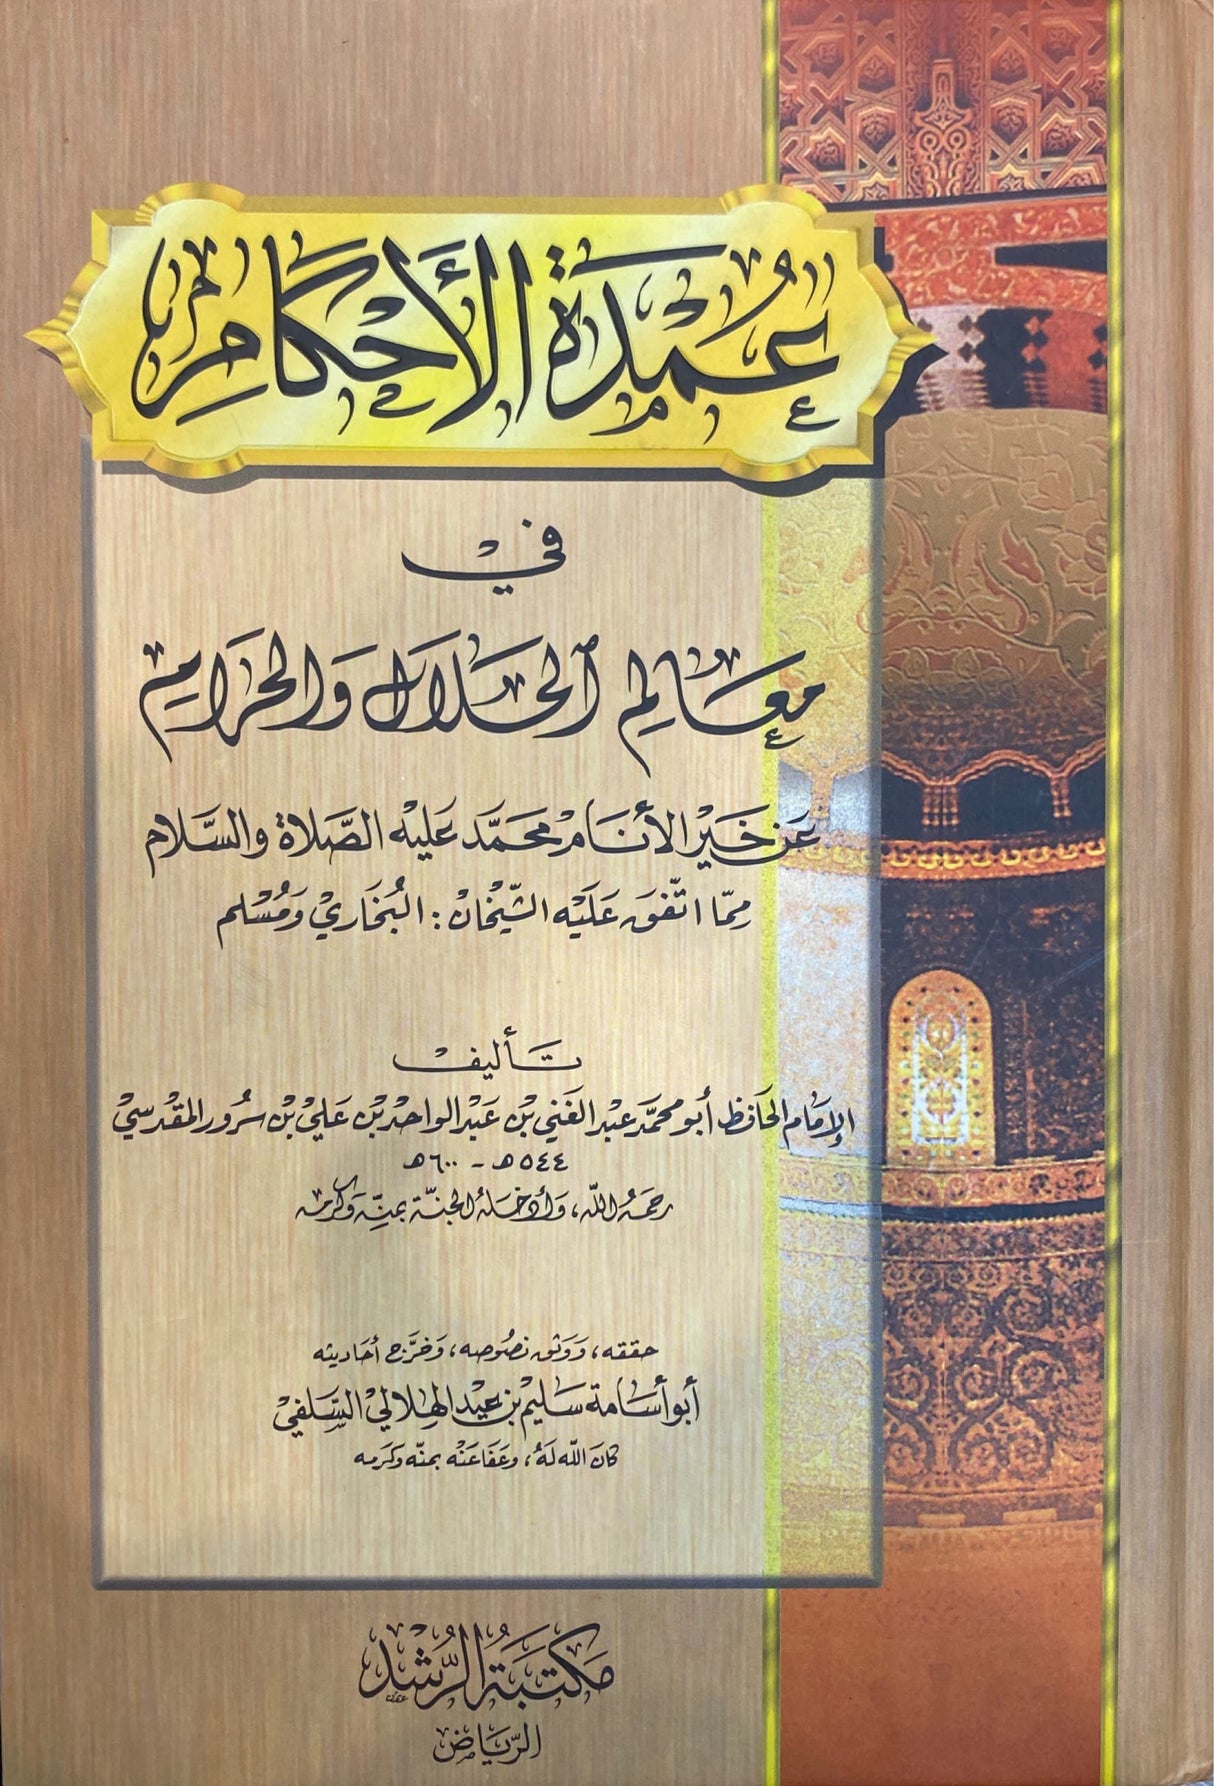 عُمْدَةُ الأَحْكَامِ
في
مَعَالِمِ ٱلحَلَالِ وَالحَرَامِ
عَن خَيْر الأنَام محمَّد عَليه الصَّلاة والسَّلام
مِمّا اتّفق عَلَيْه الشّيْخَان : البُخَاري وَمُسْلم
تأليف
الإمَام الحَافظ أبو محمَّد عَبْد الغَني بْن عَبْد الواحد بْن عَلي بْن سرُور المقْدسيْ
٥٤٤هـ - ٦٠٠هـ
رحمَهُ اللّه، وَأدخَلهُ الجنّة بمنِّه وَكرَمه
حققه، وَوَثق نصُوصه، وَخرَّج أحَاديثه
أبو أسَامة سَليم بن عيْد الهلاليْ السَّلفيْ
كانَ اللّه لَهُ، وعَفا عَنْه بمنّه وكرَمه
مَكتبَةُ الرُّشْد
الريَاض